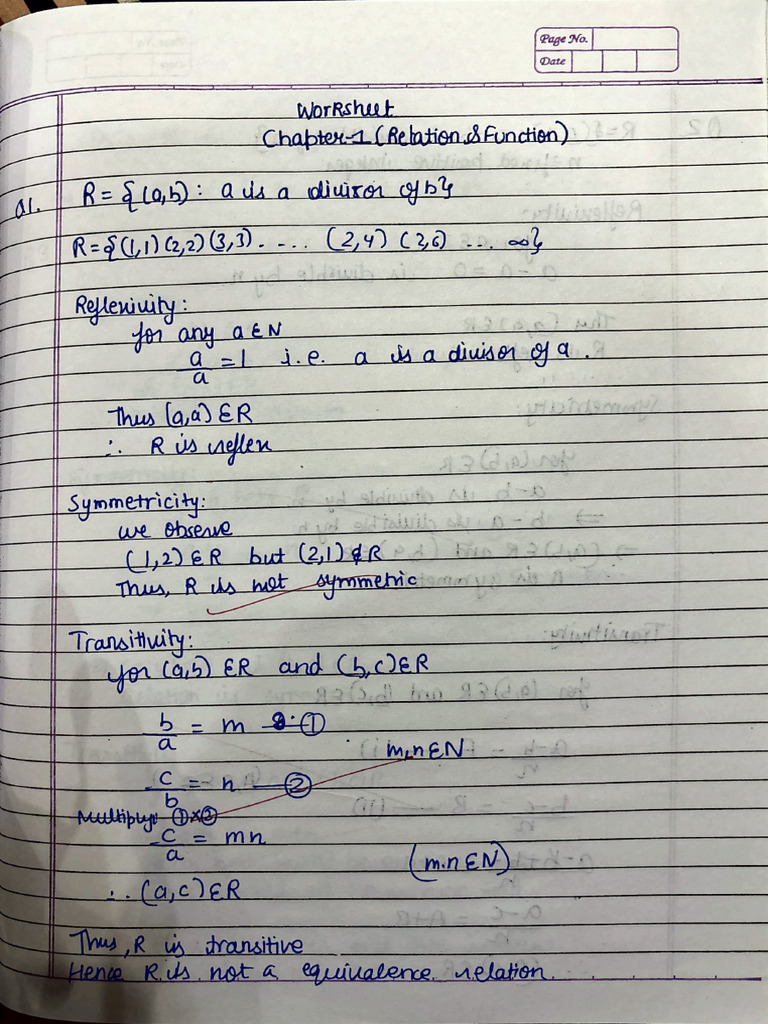 Page No.
Date
Worksheet
Chapter-1 (Relation & Function)
Q1. R = {(a,b) : a is a divisor of b}
R = {(1,1) (2,2) (3,3) - ... (2,4) (2,6) ... ∞}
Reflexivity:
for any a ∈ N
a/a = 1 i.e. a is a divisor of a.
Thus (a,a) ∈ R
∴ R is reflex
Symmetricity:
we observe
(1,2) ∈ R but (2,1) ∉ R
Thus, R is not symmetric
Transitivity:
for (a,b) ∈ R and (b,c) ∈ R
b/a = m - ①
m,n ∈ N
c/b = n — ②
Multiply ① × ②
c/a = mn
(m.n ∈ N)
∴ (a,c) ∈ R
Thus, R is transitive
Hence R is not a equivalence relation.